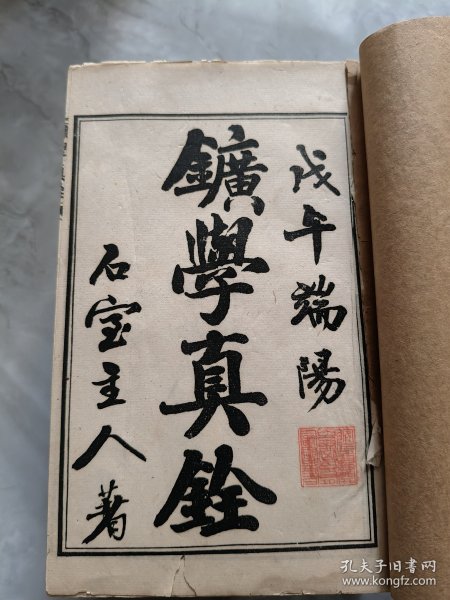 戊午端陽
鑛學真銓
石室主人著
孔夫子旧书网
www.kongfz.com